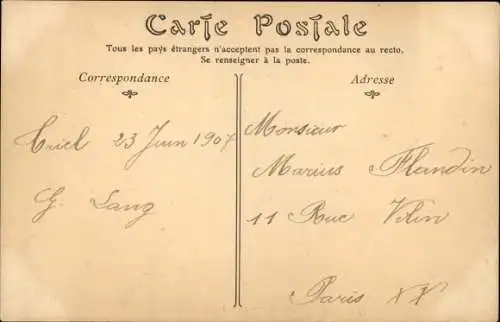 Carte Postale
Tous les pays étrangers n'acceptent pas la correspondance au recto.
Se renseigner à la poste.
Correspondance
23 Juin 1907
G. Lang
Adresse
Monsieur
Marius Flandin
11 Rue Vilin
Paris XX